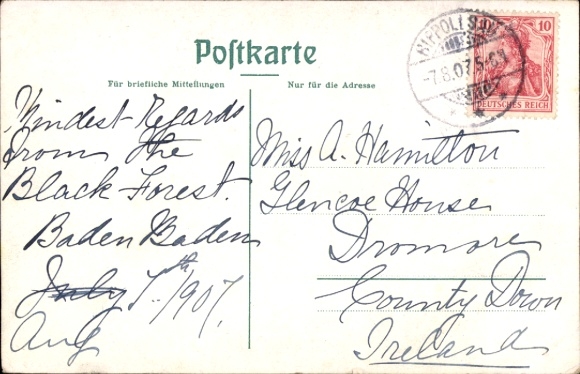 Postkarte
Für briefliche Mitteilungen
Nur für die Adresse
10
DEUTSCHES REICH
7.8.07.5-6N
Kindest Regards
from the
Black Forest.
Baden Baden
July 7th 1907.
Aug
Miss A. Hamilton
Glencoe House
Dromore
County Down
Ireland